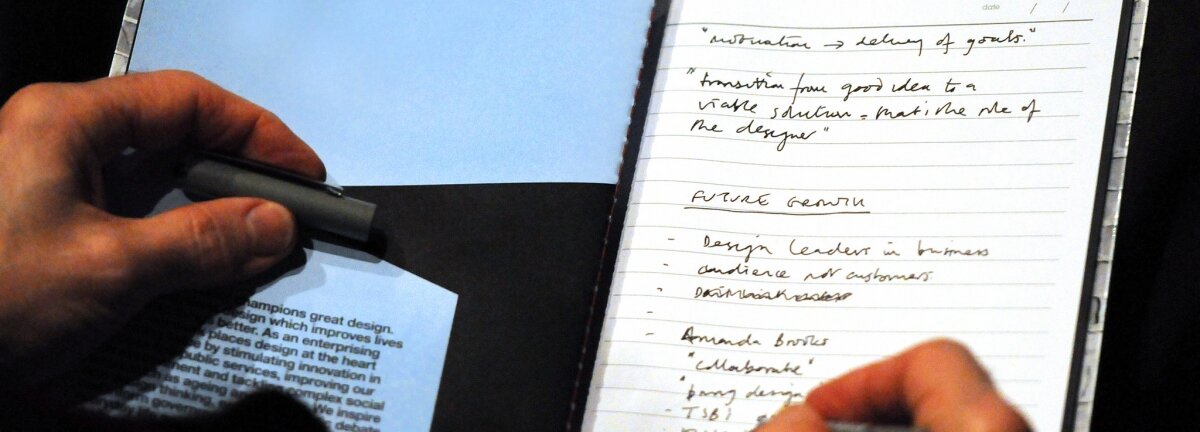 hampions great design.
sign which improves lives
better. As an enterprising
places design at the heart
by stimulating innovation in
public services, improving our
ment and tackling complex social
as ageing and
thinking,
gover
We inspire
debate
date / /
"motivation → delivery of goals."
"transition from good idea to a
viable solution = that's the role of
the designer"
FUTURE GROWTH
- Design leaders in business
- audience not customers
-
-
- Amanda Brooks
"collaborate"
"bring design
- TSB